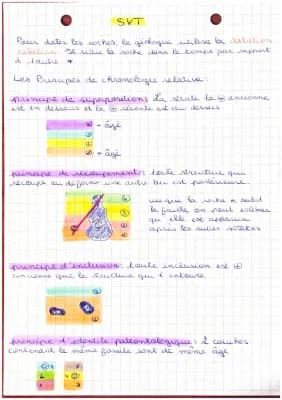 SVT
Pour dater les roches, le géologue utilise la datation
relative. Il situe la roche dans le temps par rapport
à l'autre *
Les Principes de chronologie relative:
principe de superposition: La strate la ⊕ ancienne
est en dessous et la ⊕ récente est au dessus
- âgé
+ âgé
principe de recoupement: toute structure qui
recoupe ou déforme une autre lui est postérieure.
la faille, on peut estimer
qu'elle est apparue
après les autres strates
principe d'inclusion: toute inclusion est ⊕
ancienne que la structure qui l'entoure.
principe d'identité paléontologique: 2 couches
contenant le même fossile sont de même âge